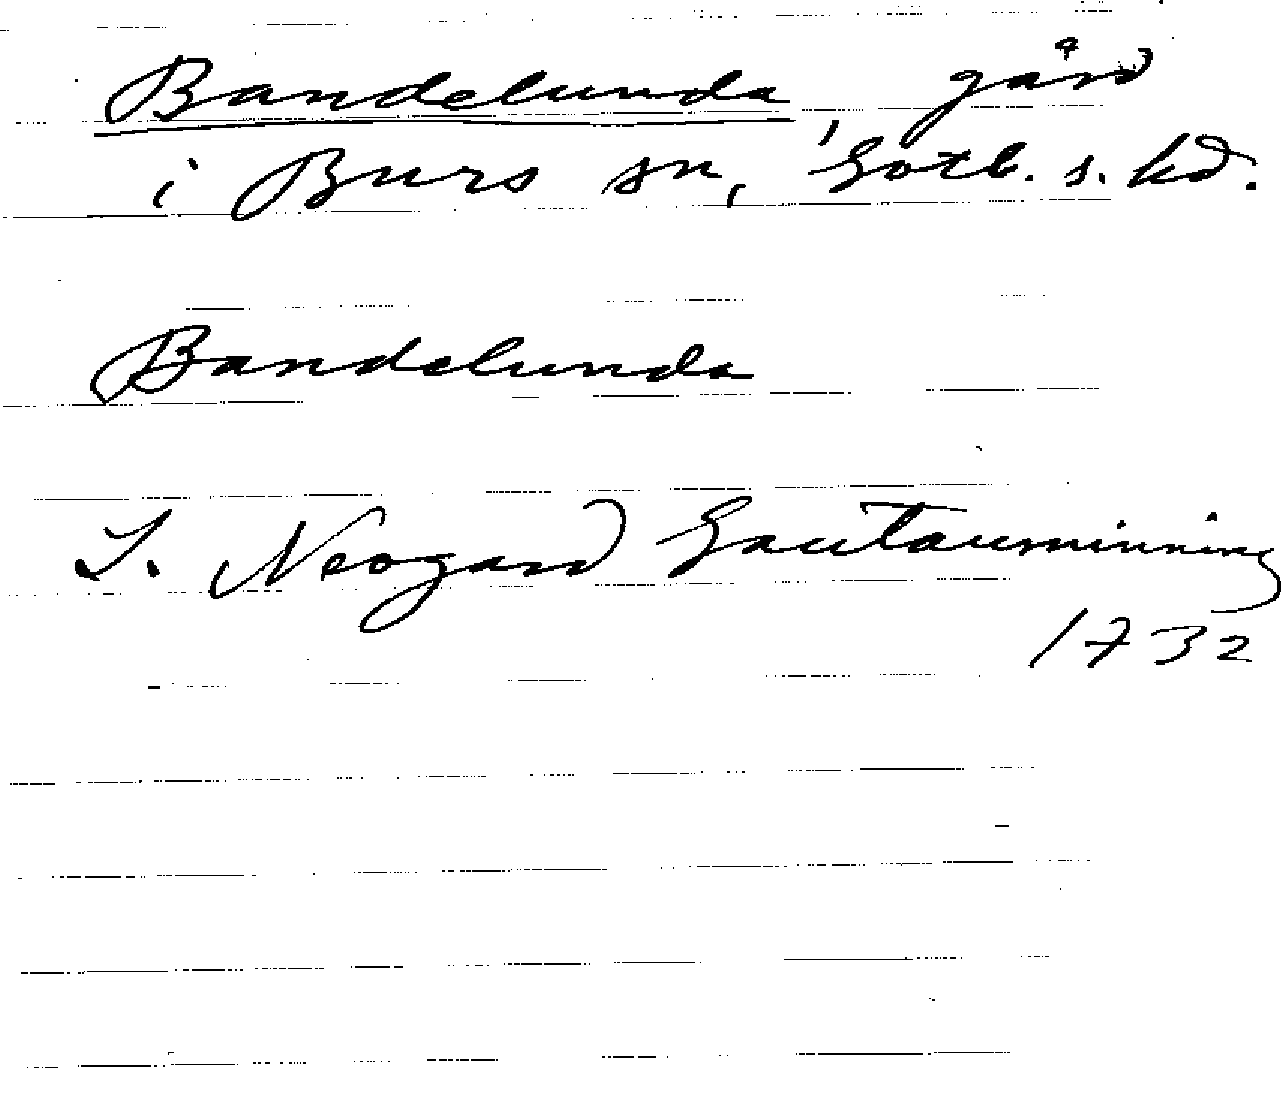 Bandelunda, gård
i Burs sn, Gotl. s. hd.
Bandelunda
J. Neogard Gautauminning
1732